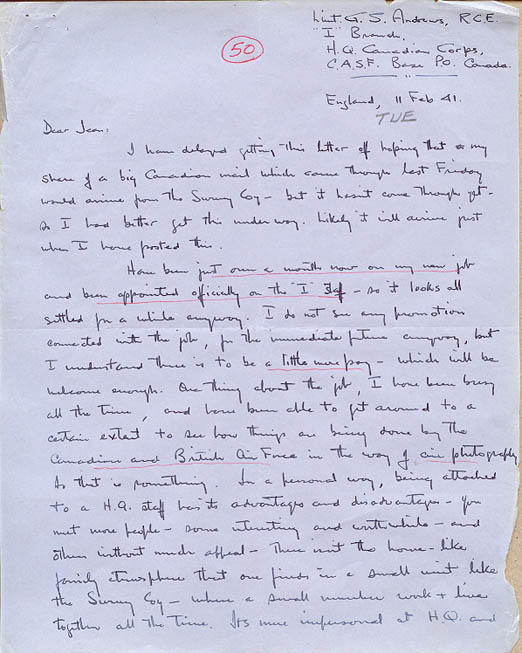 Lieut. G. S. Andrews, R.C.E.
"I" Branch.
H.Q. Canadian Corps,
C.A.S.F. Base P.O. Canada.
50
England, 11 Feb 41.
TUE
Dear Jean:
I have delayed getting this letter off hoping that my
share of a big Canadian mail which came through last Friday
would arrive from the Survey Coy - but it hasn't come through yet -
so I had better get this under way. Likely it will arrive just
when I have posted this.
Have been just over a month now on my new job
and been appointed officially on the "I" Staff - so it looks all
settled for a while anyway. I do not see any promotion
connected with the job, for the immediate future anyway, but
I understand there is to be a little more pay - which will be
welcome enough. One thing about the job, I have been busy
all the time, and have been able to get around to a
certain extent to see how things are being done by the
Canadian and British Air Force in the way of air photography
So that is something. In a personal way, being attached
to a H.Q. staff has its advantages and disadvantages - you
meet more people - some interesting and worthwhile - and
others without much appeal - There isn't the home-like
family atmosphere that one finds in a small unit like
the Survey Coy - where a small number work + live
together all the time. Its more impersonal at H.Q. and